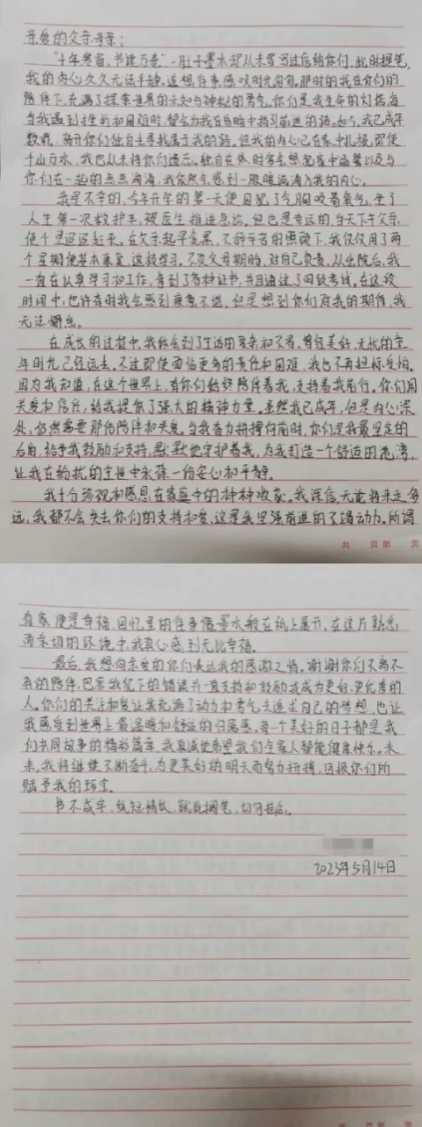 亲爱的父亲母亲：
"十年寒窗，书读万卷"，肚子墨水却从未写过信给你们，此时提笔，
我的内心久久无法平静，遥想往事，感叹时光匆匆。那时的我在你们的
陪伴下，充满了探索世界的未知与神秘的勇气。你们是我生命的灯塔，每
当我遇到挫折和困难时，都会为我在黑暗中指引前进的路。如今，我已成年
数载，离开你们独自去寻找属于我的路。但我的内心已在家中扎根，即使
千山万水，我也从未将你们遗忘。独自在外时常会想起家中温馨以及与
你们在一起的点点滴滴，我依然会感到一股暖流涌入我的内心。
我是不幸的，今年开学的第一天便因犯了气胸咬着氧气，坐了
人生第一次救护车，被医生推进急诊。但也是幸运的，当天下午父亲
便匆匆赶来。在父亲起早贪黑、不辞辛苦的照顾下，我仅仅用了两
个星期便基本康复。返校学习，不负父母期盼，对自己负责，从出院后，我
一直在认真学习和工作，拿到了各种证书，并且通过了四级考试。在这段
时间中，也许有时我会感到疲惫不堪，但是想到你们对我的期待，我
无法懈怠。
在成长的过程中，我体会到了生活的复杂和不易，曾经美好、无忧的童
年时光已经远去。不过即使面临更多的责任和困难，我也不再担惊受怕。
因为我知道，在这个世界上，有你们始终陪伴着我，支持着我前行。你们用
关爱和信任，给我提供了强大的精神力量。虽然我已成年，但是内心深
处，仍然需要那份陪伴和关爱。当我奋力拼搏向前时，你们是我最坚定的
后盾，给予我鼓励和支持，默默地守护着我，为我打造一个舒适的港湾，
让我在纷扰的尘世中永葆一份安心和平静。
我十分珍视和感恩在家庭中的种种收获。我深信，无论将来走多
远，我都不会失去你们的支持和爱，这是我坚强前进的不竭动力。所谓
共 页第 页
有家便是幸福，回忆里的往事像墨水般在纸上展开，在这片熟悉
而亲切的环境中，我真心感到无比幸福。
最后，我想向亲爱的你们表达我的感激之情。谢谢你们不离不
弃的陪伴，包容我犯下的错误并一直支持和鼓励我成为更好、更优秀的
人。你们的关注和爱让我充满了动力和勇气去追求自己的梦想，也让
我感受到世界上最温暖和舒适的归属感。每一个美好的日子都是我
们共同故事的精彩篇章。我真诚地希望我们全家人都能健康快乐，未
来，我将继续不断奋斗，为更美好的明天而努力拼搏，回报你们所
赋予我的珍宝。
书不成字，纸短情长，就此搁笔，切问在后。
2023年5月14日